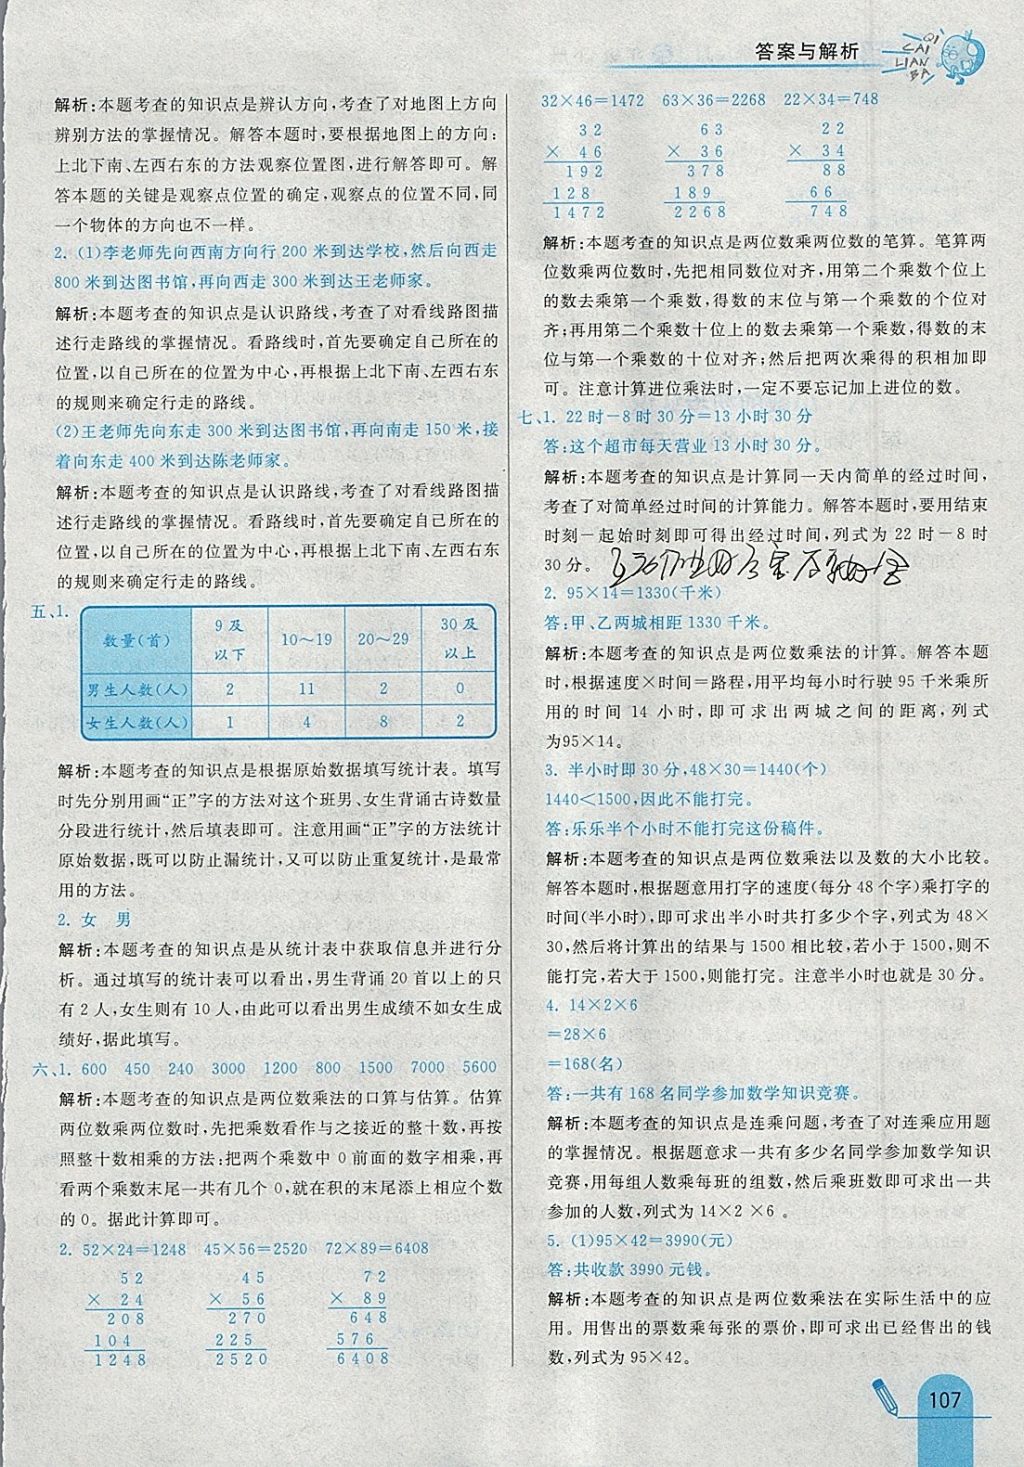 答案与解析
QI
CAI
LIAN
BA
解析:本题考查的知识点是辨认方向,考查了对地图上方向
辨别方法的掌握情况。解答本题时,要根据地图上的方向:
上北下南、左西右东的方法观察位置图,进行解答即可。解
答本题的关键是观察点位置的确定,观察点的位置不同,同
一个物体的方向也不一样。
2. (1)李老师先向西南方向行 200 米到达学校,然后向西走
800 米到达图书馆,再向西走 300 米到达王老师家。
解析:本题考查的知识点是认识路线,考查了对看线路图描
述行走路线的掌握情况。看路线时,首先要确定自己所在的
位置,以自己所在的位置为中心,再根据上北下南、左西右东
的规则来确定行走的路线。
(2)王老师先向东走 300 米到达图书馆,再向南走 150 米,接
着向东走 400 米到达陈老师家。
解析:本题考查的知识点是认识路线,考查了对看线路图描
述行走路线的掌握情况。看路线时,首先要确定自己所在的
位置,以自己所在的位置为中心,再根据上北下南、左西右东
的规则来确定行走的路线。
五、1.
数量(首) 9 及以下 10～19 20～29 30 及以上
男生人数(人) 2 11 2 0
女生人数(人) 1 4 8 2
解析:本题考查的知识点是根据原始数据填写统计表。填写
时先分别用画“正”字的方法对这个班男、女生背诵古诗数量
分段进行统计,然后填表即可。注意用画“正”字的方法统计
原始数据,既可以防止漏统计,又可以防止重复统计,是最常
用的方法。
2. 女 男
解析:本题考查的知识点是从统计表中获取信息并进行分
析。通过填写的统计表可以看出,男生背诵 20 首以上的只
有 2 人,女生则有 10 人,由此可以看出男生成绩不如女生成
绩好,据此填写。
六、1. 600 450 240 3000 1200 800 1500 7000 5600
解析:本题考查的知识点是两位数乘法的口算与估算。估算
两位数乘两位数时,先把乘数看作与之接近的整十数,再按
照整十数相乘的方法:把两个乘数中 0 前面的数字相乘,再
看两个乘数末尾一共有几个 0,就在积的末尾添上相应个数
的 0。据此计算即可。
2. 52×24=1248 45×56=2520 72×89=6408
52 45 72
× 24 × 56 × 89
208 270 648
104 225 576
1248 2520 6408
32×46=1472 63×36=2268 22×34=748
32 63 22
× 46 × 36 × 34
192 378 88
128 189 66
1472 2268 748
解析:本题考查的知识点是两位数乘两位数的笔算。笔算两
位数乘两位数时,先把相同数位对齐,用第二个乘数个位上
的数去乘第一个乘数,得数的末位与第一个乘数的个位对
齐;再用第二个乘数十位上的数去乘第一个乘数,得数的末
位与第一个乘数的十位对齐;然后把两次乘得的积相加即
可。注意计算进位乘法时,一定不要忘记加上进位的数。
七、1. 22 时－8 时 30 分=13 小时 30 分
答:这个超市每天营业 13 小时 30 分。
解析:本题考查的知识点是计算同一天内简单的经过时间,
考查了对简单经过时间的计算能力。解答本题时,要用结束
时刻－起始时刻即可得出经过时间,列式为 22 时－8 时
30 分。
2. 95×14=1330(千米)
答:甲、乙两城相距 1330 千米。
解析:本题考查的知识点是两位数乘法的计算。解答本题
时,根据速度×时间=路程,用平均每小时行驶 95 千米乘所
用的时间 14 小时,即可求出两城之间的距离,列式
为95×14。
3. 半小时即 30 分,48×30=1440(个)
1440<1500,因此不能打完。
答:乐乐半个小时不能打完这份稿件。
解析:本题考查的知识点是两位数乘法以及数的大小比较。
解答本题时,根据题意用打字的速度(每分 48 个字)乘打字的
时间(半小时),即可求出半小时共打多少个字,列式为 48×
30,然后将计算出的结果与 1500 相比较,若小于 1500,则不
能打完,若大于 1500,则能打完。注意半小时也就是 30 分。
4. 14×2×6
=28×6
=168(名)
答:一共有 168 名同学参加数学知识竞赛。
解析:本题考查的知识点是连乘问题,考查了对连乘应用题
的掌握情况。根据题意求一共有多少名同学参加数学知识
竞赛,用每组人数乘每班的组数,然后再乘班数,即可求出一共
参加的人数,列式为 14×2 ×6 。
5. (1)95×42=3990(元)
答:共收款 3990 元钱。
解析:本题考查的知识点是两位数乘法在实际生活中的应
用。用售出的票数乘每张的票价,即可求出已经售出的钱
数,列式为 95×42。
107